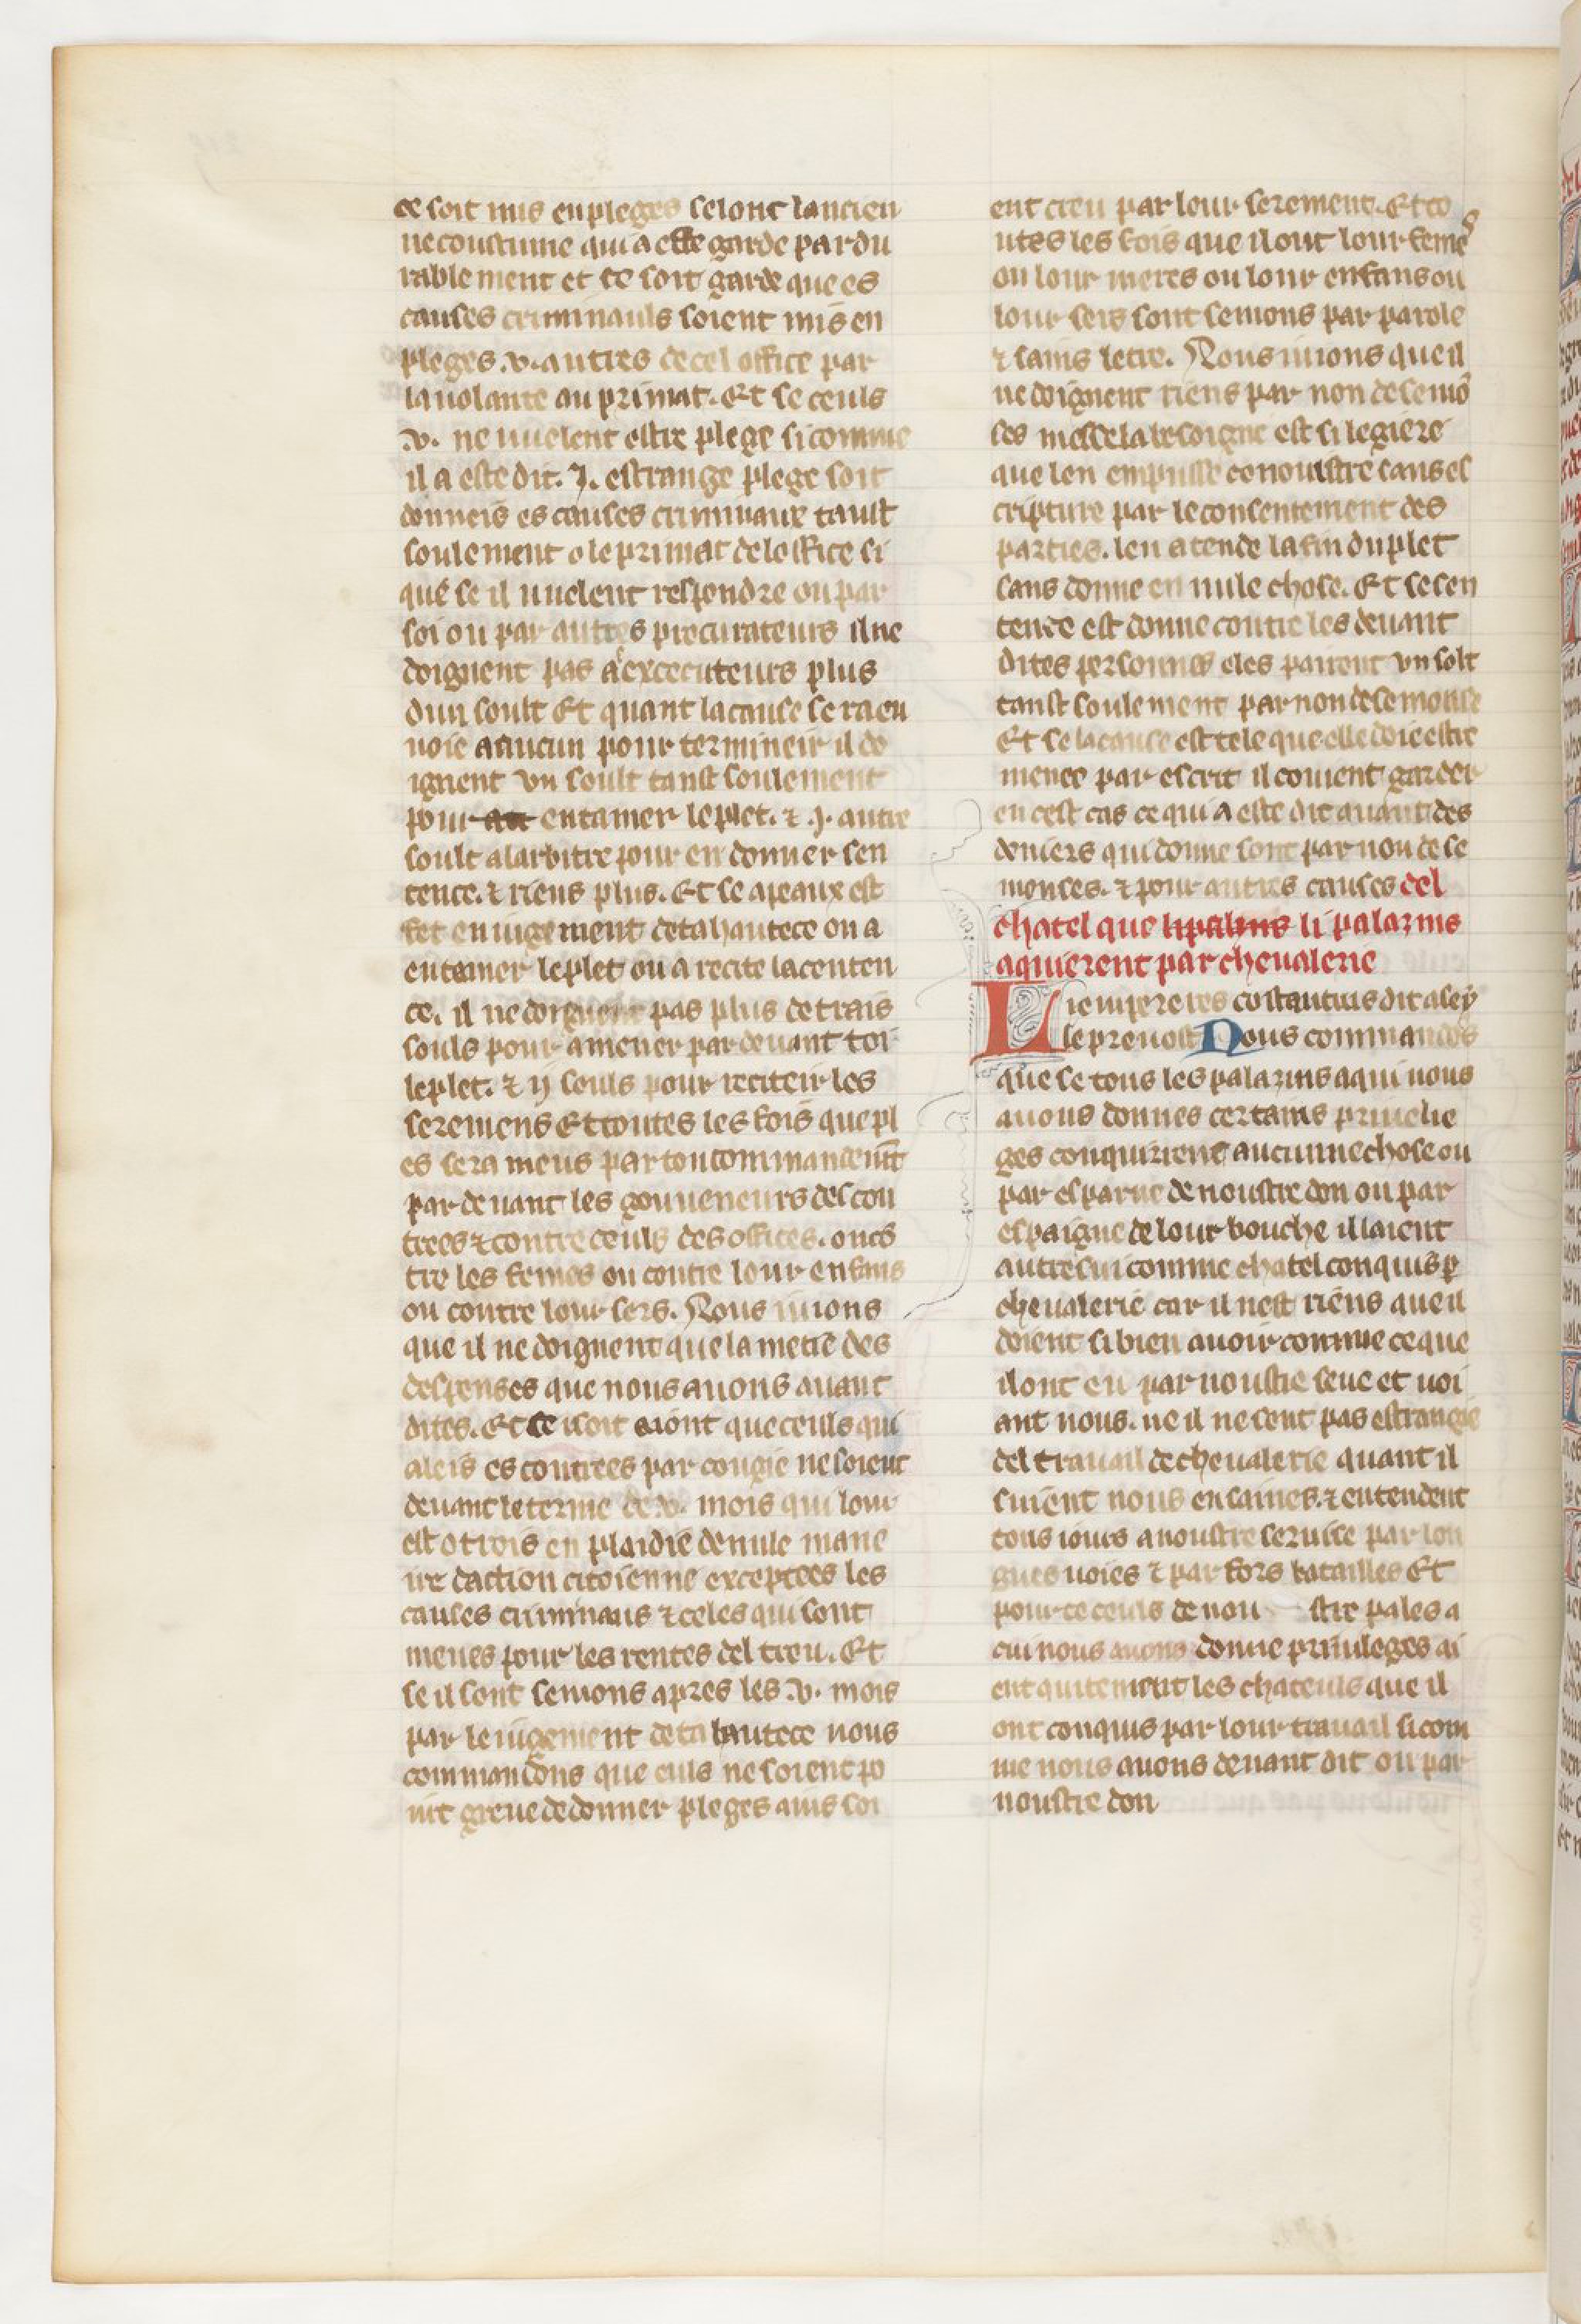 ce soit mis en pleges selonc lancien
ne coustume qui a este garde pardu
rablement et ce soit garde que es
causes criminauls soient mis en
pleges .v. autres de cel office par
la uolante au primat. Et se ceuls
.v. ne uuelent estre plege si comme
il a este dit. J. estrange plege soit
donneis es causes criminaux tault
soulement o le primat de loffice si
que se il uuelent respondre ou par
soi ou par autres procurateurs il ne
doignent pas a excecuteurs plus
dun soult Et quant la cause sera en
uoie aaucun pour termineir il do
ignent vn soult tanst soulement
pour entamer le plet. ⁊ .J. autre
soult alarbitre pour en donner sen
tence. ⁊ riens plus. Et se apeaux est
fet en iugement de ta hautece ou a
entamer le plet ou a recite la centen
ce. il ne doignent pas plus de trais
souls pour amener par deuant toi
le plet. ⁊ ij souls pour reciteir les
seremens Et toutes les fois que pl
es sera meus par ton commandemt
par deuant les gouueneurs des con
trees ⁊ contre ceuls des offices. oncs
tre les femes ou contre lour enfans
ou contre lour sers. Nous iuions
que il ne doignent que la metie des
despenses que nous auons auant
dites. Et ce isoit aiont que ceuls qui
aleis es contrees par congie ne soient
deuant le terme de .v. mois qui lour
est otrois en plaidie de nule mane
ire daction citoienne exceptees les
causes criminaus ⁊ celes qui sont
menes pour les rentes del treu. Et
se il sont semons apres les .v. mois
par le iugement de ta hautece nous
commandons que euls ne soient po
int greue de donner pleges ains soi
ent creu par leur serement. Et to
utes les fois que il ont lour femes
ou lour meres ou lour enfans ou
lour sers sont semons par parole
⁊ sains letre. Nous iuions que il
ne doignent riens par non de semo
ses mes se la besoigne est si legiere
que len empuisse conoustre sans es
cripture par le consentement des
parties. len atende la fin du plet
sans donne en nule chose. Et se sen
tence est donne contre les deuant
dites personnes eles paient vn solt
tanst soulement par non de semonse
Et se la cause est tele que elle doie estre
menee par escrit il couient garder
en cest cas ce qui a este dit auant des
deniers qui donne sont par non de se
monses. ⁊ pour autres causes del
chatel que lipalins li palazins
aquierent par cheualerie
Li empereres costantins dit a ley
le preuost Nous commandos
que se tous les palazins a qui nous
auons donnes certains priuelie
ges conquirrent aucunne chose ou
par esparne de noustre don ou par
espaigne de lour bouche il laient
autresui comme chatel conquis p
cheualerie car il nest riens que il
doient si bien auoir comme ce que
il ont eu par noustre seue et uoi
ant nous. ne il ne sent pas estrange
del trauail de cheualerie quant il
suient nous ensaines. ⁊ entendent
tous iours a noustre seruise par lon
gues uoies ⁊ par fors batailles Et
pour ce ceuls de nou stre pales a
cui nous auons donne priuileges ai
ent quitement les chateuls que il
ont conquis par lour trauail si com
me nous auons deuant dit ou par
noustre don